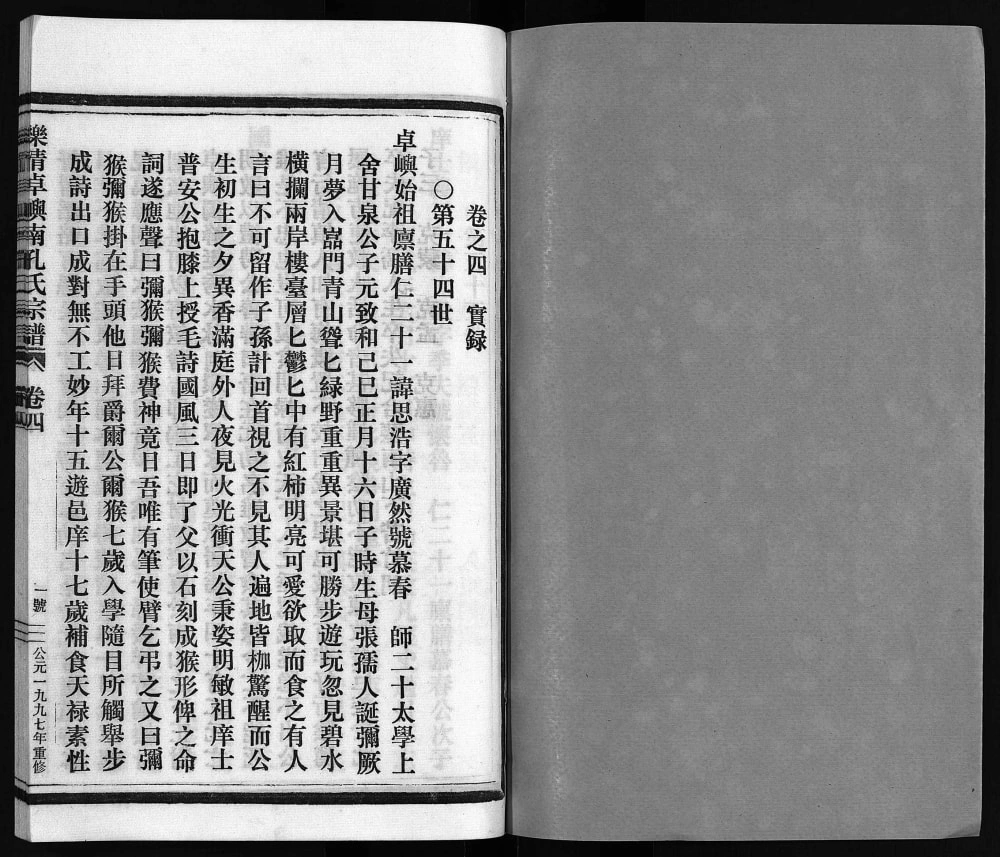 卷之四 實録
○第五十四世
卓嶼始祖廪膳仁二十一諱思浩字廣然號慕春 師二十太學上
舍甘泉公子元致和己巳正月十六日子時生母張孺人誕彌厥
月夢入嵓門青山聳匕緑野重重異景堪可勝步遊玩忽見碧水
橫攔兩岸樓臺層匕鬱匕中有紅柿明亮可愛欲取而食之有人
言曰不可留作子孫計回首視之不見其人遍地皆枷驚醒而公
生初生之夕異香滿庭外人夜見火光衝天公秉姿明敏祖庠士
普安公抱膝上授毛詩國風三日即了父以石刻成猴形俾之命
詞遂應聲曰彌猴彌猴費神竟日吾唯有筆使臂乞弔之又曰彌
猴彌猴掛在手頭他日拜爵爾公爾猴七歲入學隨目所觸舉步
成詩出口成對無不工妙年十五遊邑庠十七歲補食天禄素性
樂清卓嶼南孔氏宗譜 卷四 一號 公元一九九七年重修